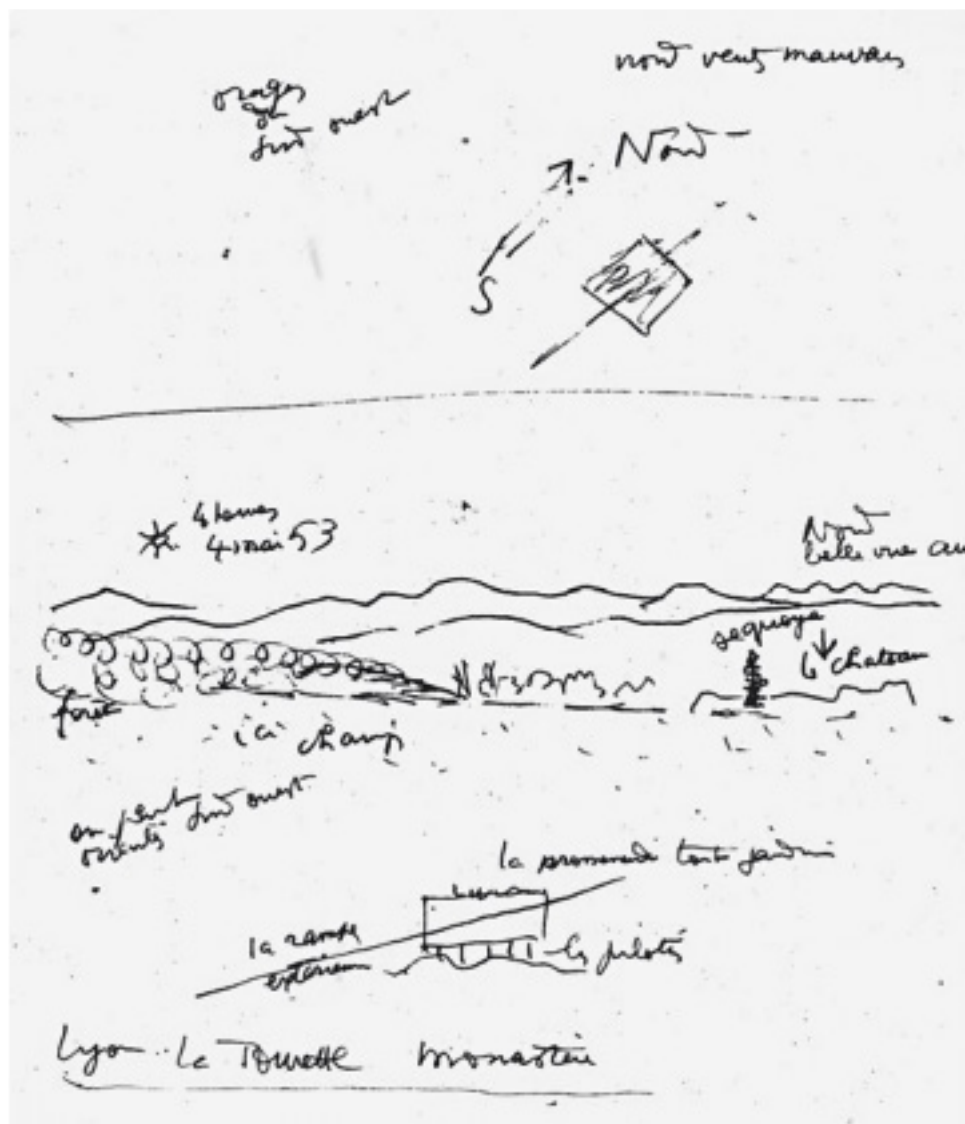 nord vents mauvais
orages
du
sud ouest
Nord
S
4 mai 53
Nord
belle vue au
sequoya
le chateau
foret
ici champ
sud ouest
la promenade toit jardin
la rampe
extérieure
les pilotis
Lyon La Tourette monastère